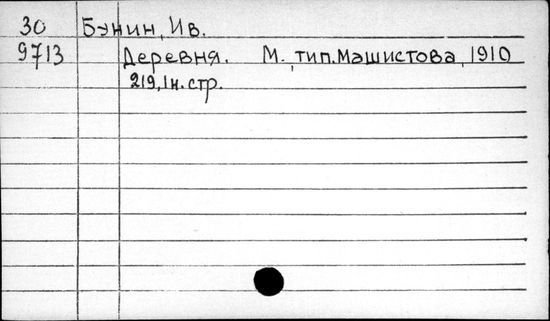 30 Бунин, Ив.
9713 Деревня. М., тип. Машистова, 1910
219, 1 н. стр.